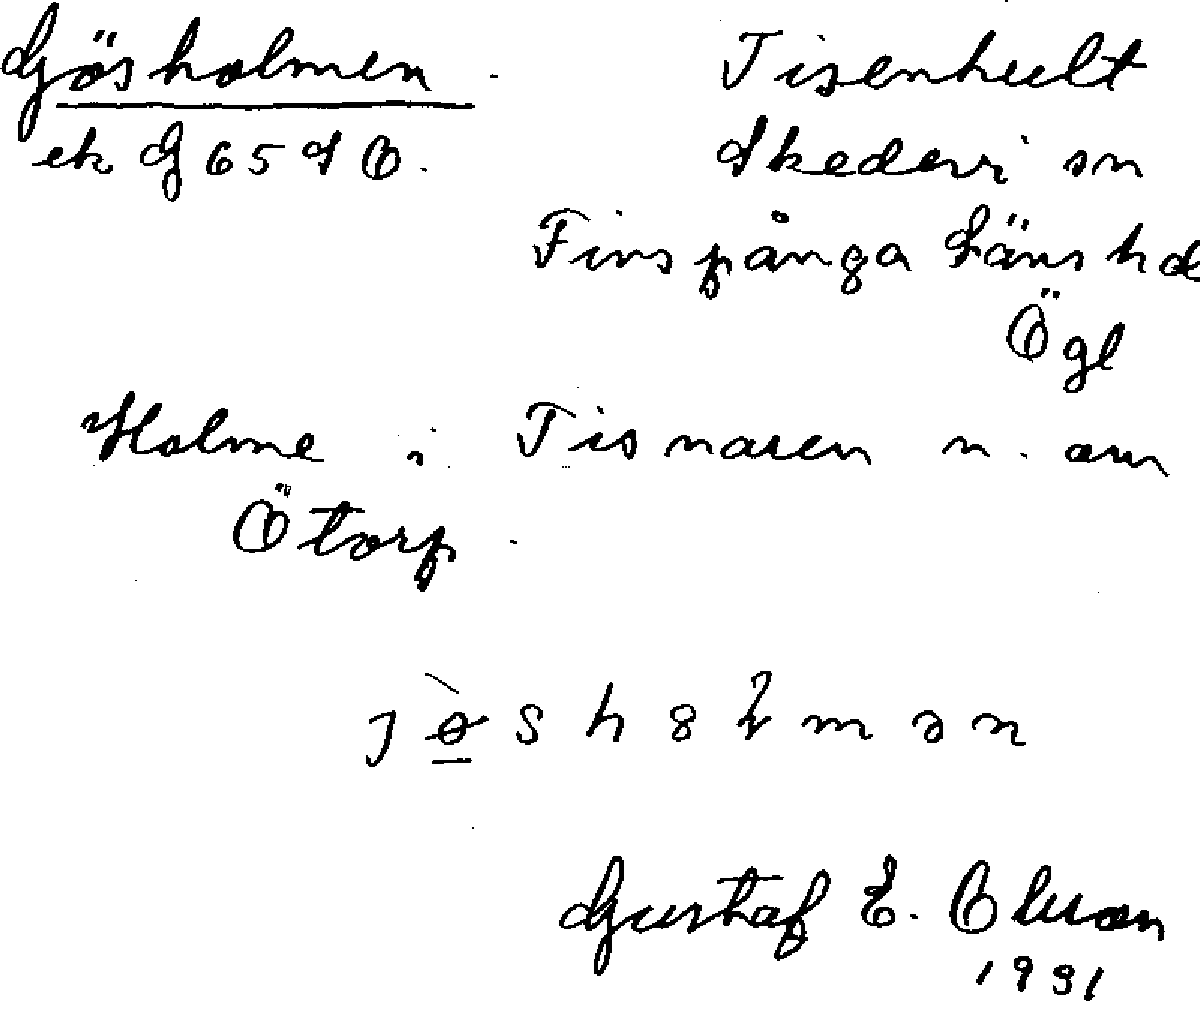 Gösholmen
ek G 65 SO.
Tisenhult
Skedevi sn
Finspånga läns hd
Ögl
Holme i Tisnaren n. om
Ötorp.
Gustaf E.
1931